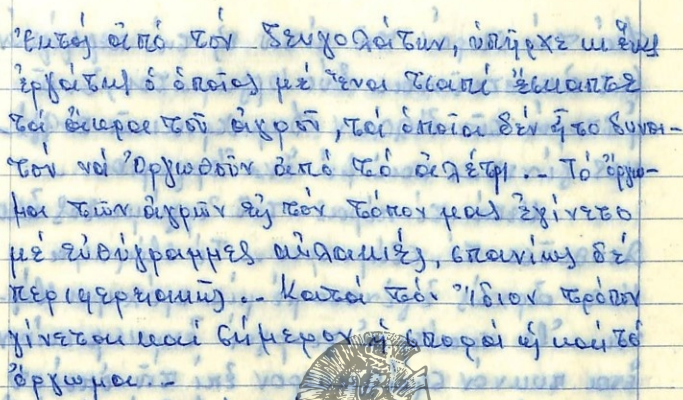 Ἐκτός ἀπό τόν ζευγολάτην, ὑπῆρχε κι ἕνας
ἐργάτης ὁ ὁποῖος μέ ἕνα τσαπί ἔσκαπτε
τά ἄκρα τοῦ ἀγροῦ, τά ὁποῖα δέν ἦτο δυνα-
τόν νά ὀργωθοῦν ἀπό τό ἀλέτρι.- Τό ὄργω-
μα τῶν ἀγρῶν εἰς τόν τόπον μας ἐγίνετο
μέ εὐθύγραμμες αὐλακιές, σπανίως δέ
περιφερειακῶς.- Κατά τόν ἴδιον τρόπον
γίνεται καί σήμερον ἡ σπορά ἤ καί τό
ὄργωμα.-